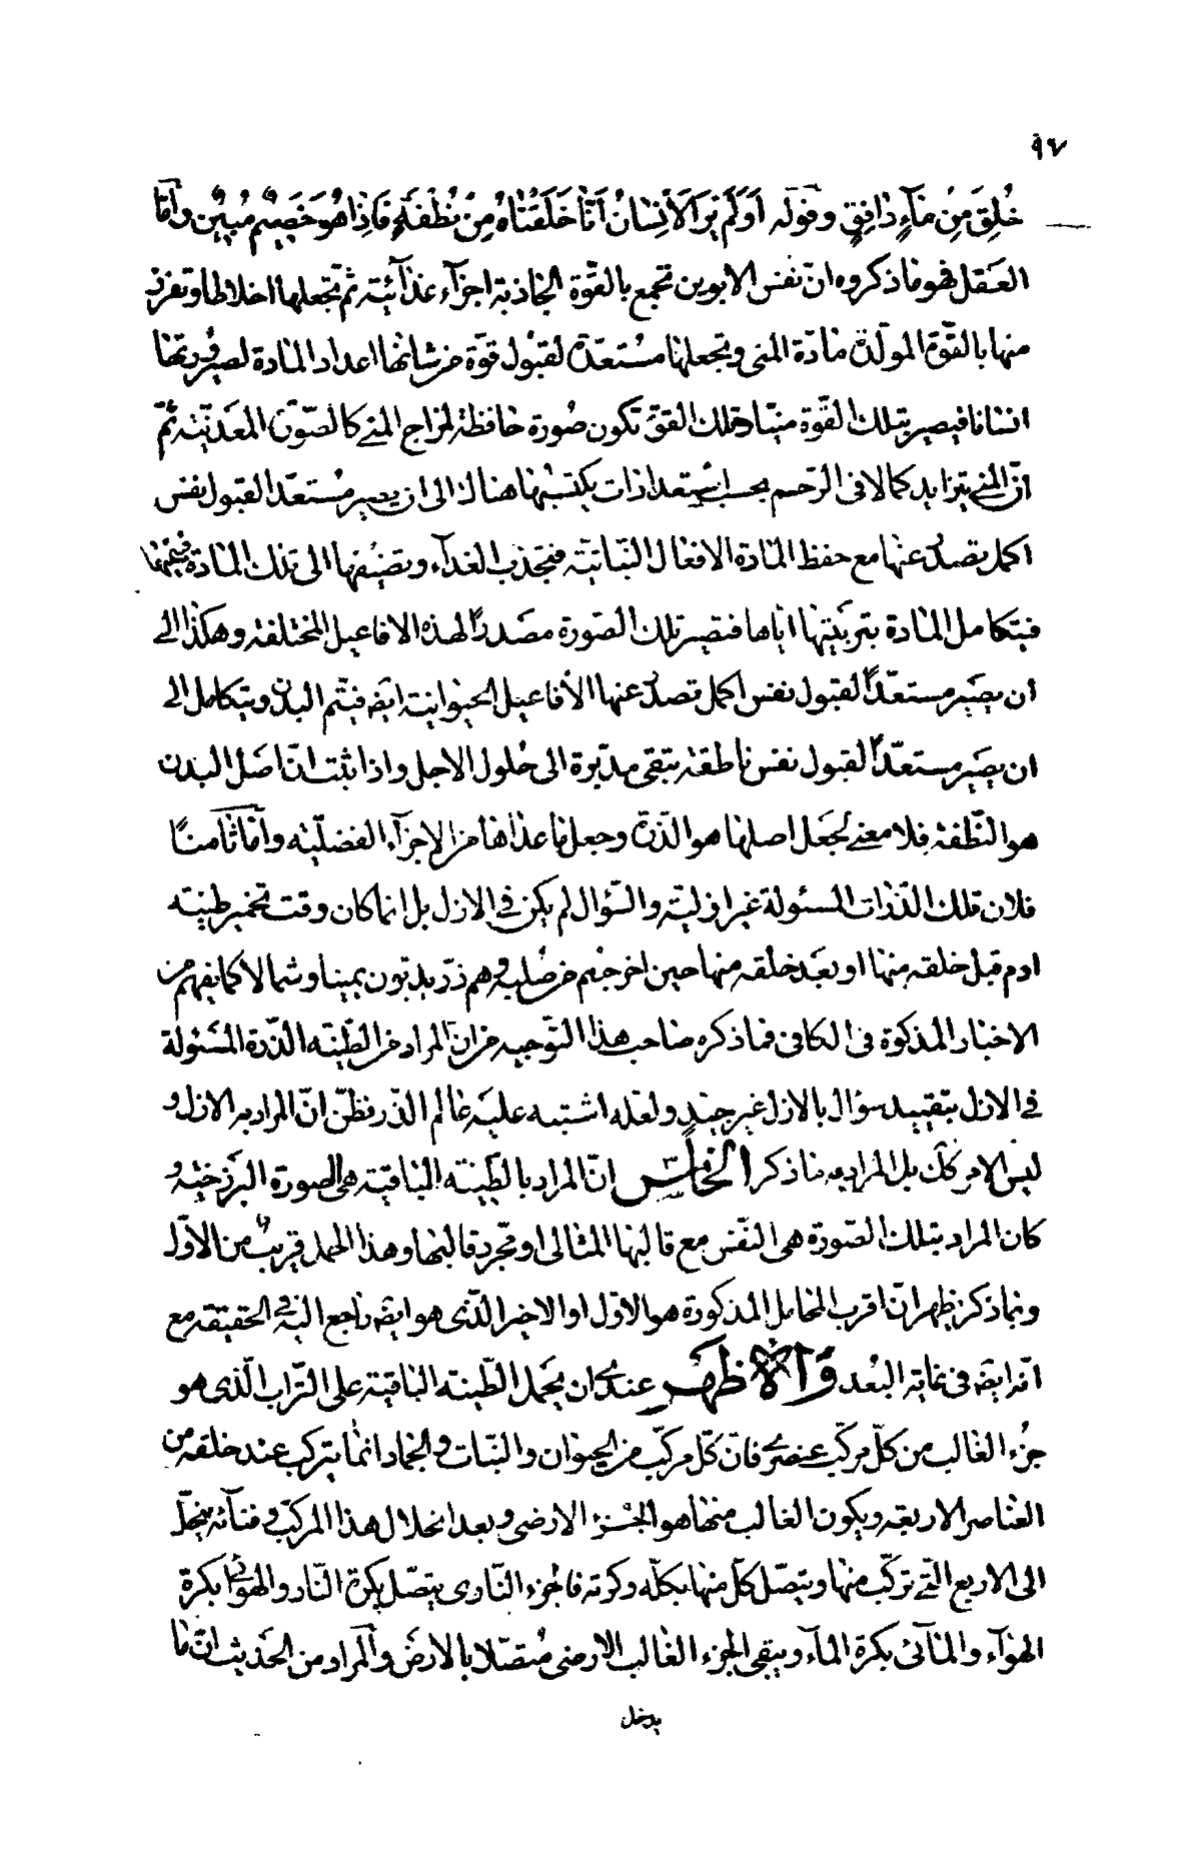 ٩٧
خُلِقَ مِنْ مَآءٍ دَافِقٍ وقوله اَوَلَمْ يَرَ الْاِنْسَانُ اَنَّا خَلَقْنَاهُ مِنْ نُطْفَةٍ فَاِذَا هُوَ خَصِيْمٌ مُبِيْنٌ وامّا
العقل فهو ما ذكروه انّ نفس الابوين تجمع بالقّوة الجاذبة اجزآء غذآئية ثم تجعلها اخلاطا وتفرز
منها بالقّوة المولّدة مادّة المنى وتجعلها مستعدّة لقبول قوّة من شانها اعداد المادة لصيرورتها
انسانا فيصير بتلك القّوة منيّا وتلك القوّة تكون صورة حافظة لمزاج المنى كالصّورة المعدنيّة ثمّ
انّ المنى يتزايد كمالا فى الرّحم بحسب استعدادات يكتسبها هناك الى ان يصير مستعدّا لقبول نفس
اكمل يصدر عنها مع حفظ المادة الافعال النباتيّة فتجذب الغذآء وتضيفها الى تلك المادة فتنميها
فيتكامل المادة بتربيتها اياها فتصير تلك الصّورة مصدراً لهذه الافاعيل المختلفة وهكذا الى
أن يصير مستعدّاً لقبول نفس اكمل تصدر عنها الأفاعيل الحيوانية ايضه فيتم البدن ويتكامل الى
ان يصير مستعدّاً لقبول نفس ناطقة تبقى مدبّرة الى حلول الاجل واذا ثبت انّ اصل البدن
هو النّطفة فلا معنى لجعل اصلها هو الذرّة وجعل ما عداها من الاجزآء الفضليّة وأمّا ثامناً
فلان تلك الذّرات المسئولة غير ازليّة والسّؤال لم يكن فى الازل بل انما كان وقت تخمير طينة
ادم قبل خلقه منها او بعد خلقه منها حين اخرجهم من صلبه وهم ذرّ يدبّون يمينا وشمالا كما يفهم من
الاخبار المذكورة فى الكافى فما ذكره صاحب هذا التوجيه من ان المراد من الطّينة الذّرة المسئولة
فى الازل بتقييد سؤال بالازل غير جيّد ولعله اشتبه عليه عالم الذّر وظنّ انّ المراد به الازل و
ليس الامر كذلك بل المراد به ما ذكر الخامس انّ المراد بالطّينة الباقية هى الصورة البرزخيّة و
كان المراد بتلك الصّورة هى النّفس مع قالبها المثالى او مجرد قالبها وهذا المحمل قريب من الأوّل
وبما ذكر يظهر انّ اقرب المحامل المذكورة هو الاوّل او الاخير الّذى هو ايضه راجع اليه فى الحقيقة مع
انّه ايضه فى غاية البُعد وَالاَظهَر عندى ان يحمل الطّينة الباقية على التّراب الّذى هو
جزء الغالب من كلّ مركّب عنصرى فانّ كلّ مركّب من الحيوان والنّبات والجماد انما يتركب عند خلقه من
العناصر الاربعة ويكون الغالب منها هو الجزء الارضى وبعد انحلال هذا المركّب وفنآئه ينحلّ
الى الاربع الّتى تركّب منها ويتّصل كلّ منها بكلّه وكرته فالجزء النّارى يتصّل بكرة النّار والهوائى بكرة
الهوآء والمآئى بكرة المآء ويبقى الجزء الغالب الارضى متّصلا بالارض والمراد من الحديث انّ ما
يدخل